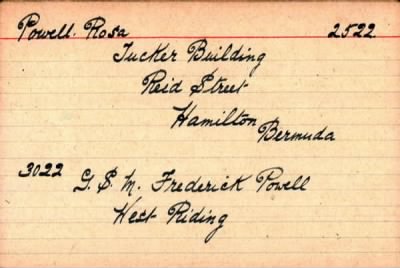 Powell. Rosa 2522
Tucker Building
Reid Street
Hamilton
Bermuda
3022 G. S. M. Frederick Powell
West Riding